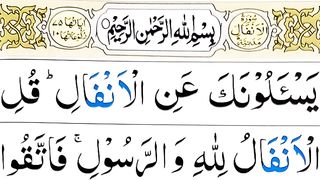 سُوْرَةُ الْاَنْفَالِ مَدَنِيَّةٌ
بِسْمِ اللّٰهِ الرَّحْمٰنِ الرَّحِيْمِ
اٰيَاتُهَا ٧٥
يَسْـَٔلُوْنَكَ عَنِ الْاَنْفَالِ ؕ قُلِ
الْاَنْفَالُ لِلّٰهِ وَ الرَّسُوْلِ ۚ فَاتَّقُوا